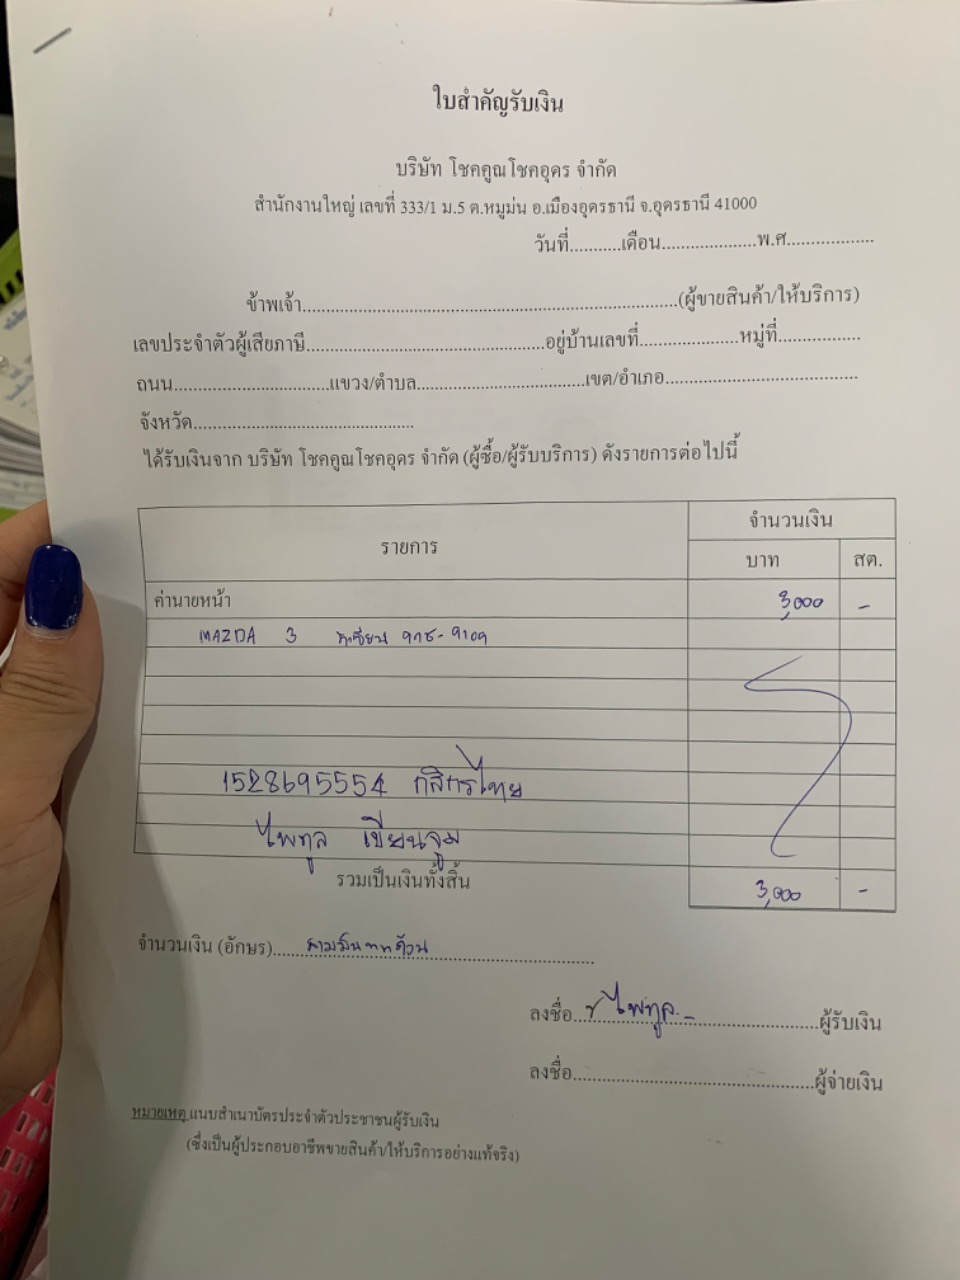 ใบสำคัญรับเงิน
บริษัท โชคคูณโชคอุดร จำกัด
สำนักงานใหญ่ เลขที่ 333/1 ม.5 ต.หมูม่น อ.เมืองอุดรธานี จ.อุดรธานี 41000
วันที่...........เดือน....................พ.ศ...................
ข้าพเจ้า................................................................................(ผู้ขายสินค้า/ให้บริการ)
เลขประจำตัวผู้เสียภาษี...................................................อยู่บ้านเลขที่.....................หมู่ที่.................
ถนน.................................แขวง/ตำบล....................................เขต/อำเภอ.........................................
จังหวัด...............................................
ได้รับเงินจาก บริษัท โชคคูณโชคอุดร จำกัด (ผู้ซื้อ/ผู้รับบริการ) ดังรายการต่อไปนี้
รายการ จำนวนเงิน
บาท สต.
ค่านายหน้า 3,000 -
MAZDA 3 ทะเบียน
1528695554 กสิกรไทย
ไพฑูล เขียนจูม
รวมเป็นเงินทั้งสิ้น 3,000 -
จำนวนเงิน (อักษร).....สามพันบาทถ้วน
ลงชื่อ ไพฑูล ผู้รับเงิน
ลงชื่อ...................................................ผู้จ่ายเงิน
หมายเหตุ แนบสำเนาบัตรประจำตัวประชาชนผู้รับเงิน
(ซึ่งเป็นผู้ประกอบอาชีพขายสินค้า/ให้บริการอย่างแท้จริง)